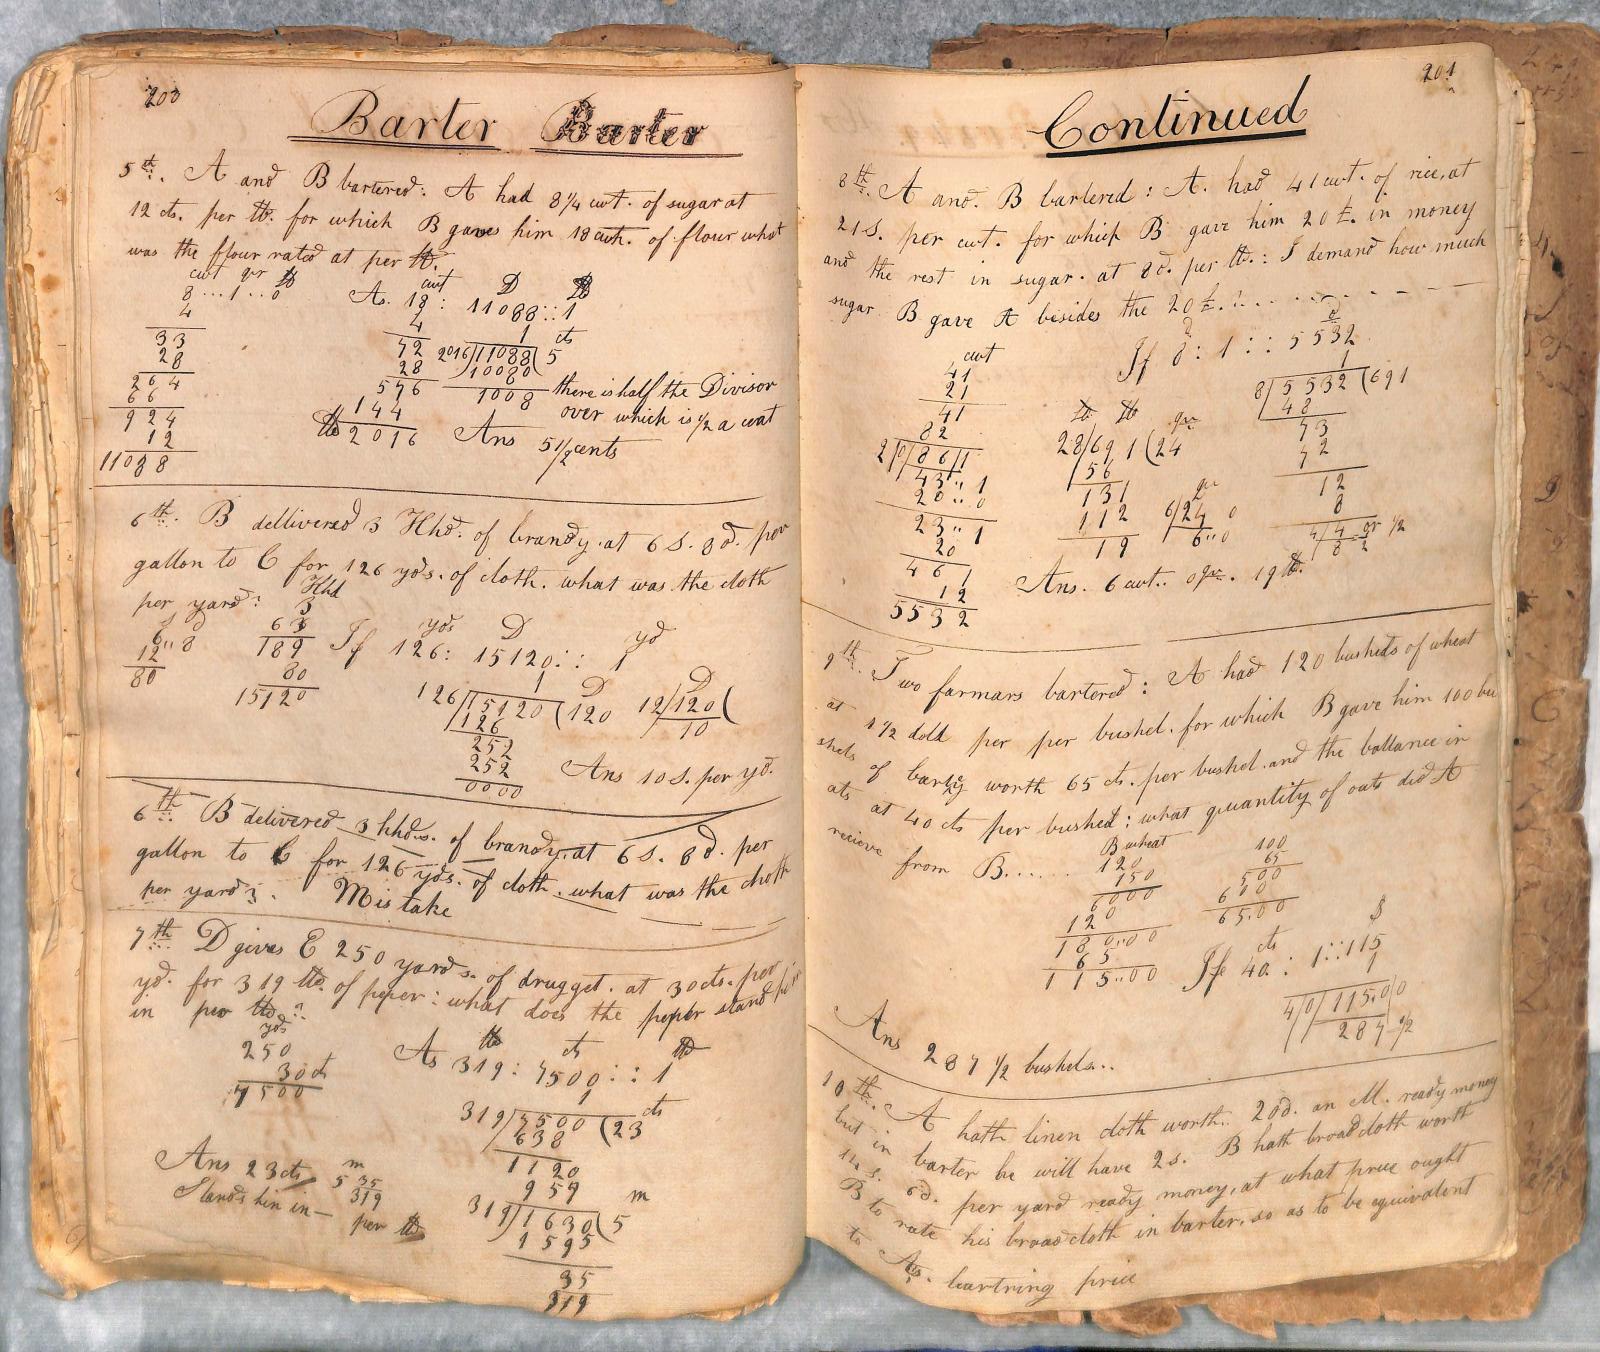 200
Barter Barter
5th. A and B bartered: A had 8 1/4 cwt. of sugar at
12 cts. per lb. for which B gaves him 18 cwt. of flour what
was the flour rated at per lb.
cwt qr lb
8...1..0
4
33
28
264
66
924
12
11088
cwt D lb
As. 18 : 11088 :: 1
4 1 cts
72 2016/11088(5
28 10080
576 1008 there is half the Divisor
144 over which is 1/2 a cent
lb 2016 Ans 5 1/2 cents
6th. B dellivered 3 Hhd. of brandy. at 6 S. 8 d. per
gallon to C for 126 yds. of cloth. what was the cloth
per yard:
S d
6..8
12
80
Hhd
3
63
189
80
15120
yds D yd
If 126: 15120:: 1
1 D D
126/15120(120 12/120(
126 10
252
252
0000
Ans 10 S. per yd.
6th B delivered 3 hhds. of brandy. at 6 s. 8 d. per
gallon to C for 126 yds. of cloth. what was the cloth
per yard. Mistake
7th D gives E 250 yards. of drugget. at 30 cts. per
yd. for 319 lb. of peper: what does the pepbr stand him
in per lb:
yds
250
30 cts
7500
lb cts lb
As 319: 7500:: 1
1 cts
319/7500(23
638
1120
959 m
319/1630(5
1595
35
319
Ans 23 cts 5 m 35
319
Stands him in— per lb
201
Continued
8th. A and. B bartered: A. had 41 cwt. of rice, at
21 S. per cwt. for which B gave him 20 £. in money
and the rest in sugar. at 8 d. per lb.: I demand how much
sugar B gave A besides the 20 £.
cwt
41
21
41
82
2|0/86|1
43..1
20..0
23..1
20
461
12
5532
d d
If 8 : 1 :: 5532
1
8/5532(691
48
73
72
12
8
4/4 qr 1/2
8 2
lb lb qr
28/691(24
56
131
112
19
qr
6/24 0
6..0
Ans. 6 cwt.. 0 qr. 19 lb.
9th. Two farmars bartered: A had 120 bushels of wheat
at 1 1/2 doll per per bushel. for which B gave him 100 bu
shels of barly worth 65 cts. per bushel. and the ballance in
ats at 40 cts per bushel: what quantity of oats did A
recieve from B......
B wheat
120
150
6000
120
180..00
65
115..00
100
65
500
600
65.00
cts $
If 40 : 1::115
1
4|0/115.0|0
287 1/2
Ans 287 1/2 bushels..
10th. A hath linen cloth worth.. 20 d. an M. ready money
but in barter he will have 2 s. B hath broadcloth worth
14 s. 6 d. per yard ready money, at what price ought
B to rate his broadcloth in barter, so as to be equivalent
to As. bartring price